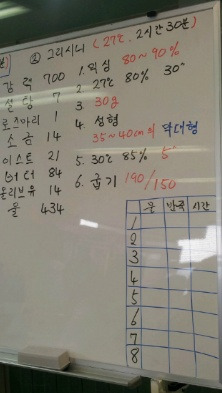 ② 그리시니 (27℃. 2시간30분)
강력 700
설탕 7
로즈마리 1
소금 14
이스트 21
버터 84
올리브유 14
물 434
1. 믹싱 80~90%
2. 27℃ 80% 30"
3. 30g
4. 성형
35~40cm의 막대형
5. 30℃ 85% 5"
6. 굽기 190/150
온 반죽 시간
1
2
3
4
5
6
7
8